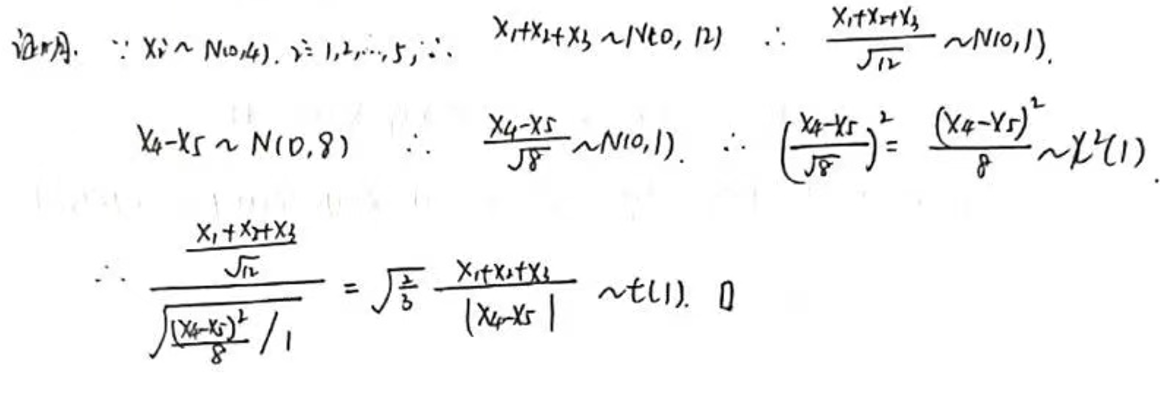 证明. ∵ Xi ~ N(0,4). i=1,2,…,5, ∴ X₁+X₂+X₃ ~ N(0, 12) ∴ (X₁+X₂+X₃)/√12 ~ N(0,1).
X₄-X₅ ~ N(0,8) ∴ (X₄-X₅)/√8 ~ N(0,1). ∴ ((X₄-X₅)/√8)² = (X₄-X₅)²/8 ~ χ²(1).
∴ ((X₁+X₂+X₃)/√12)/√((X₄-X₅)²/8 / 1) = √(2/3) (X₁+X₂+X₃)/|X₄-X₅| ~ t(1). □